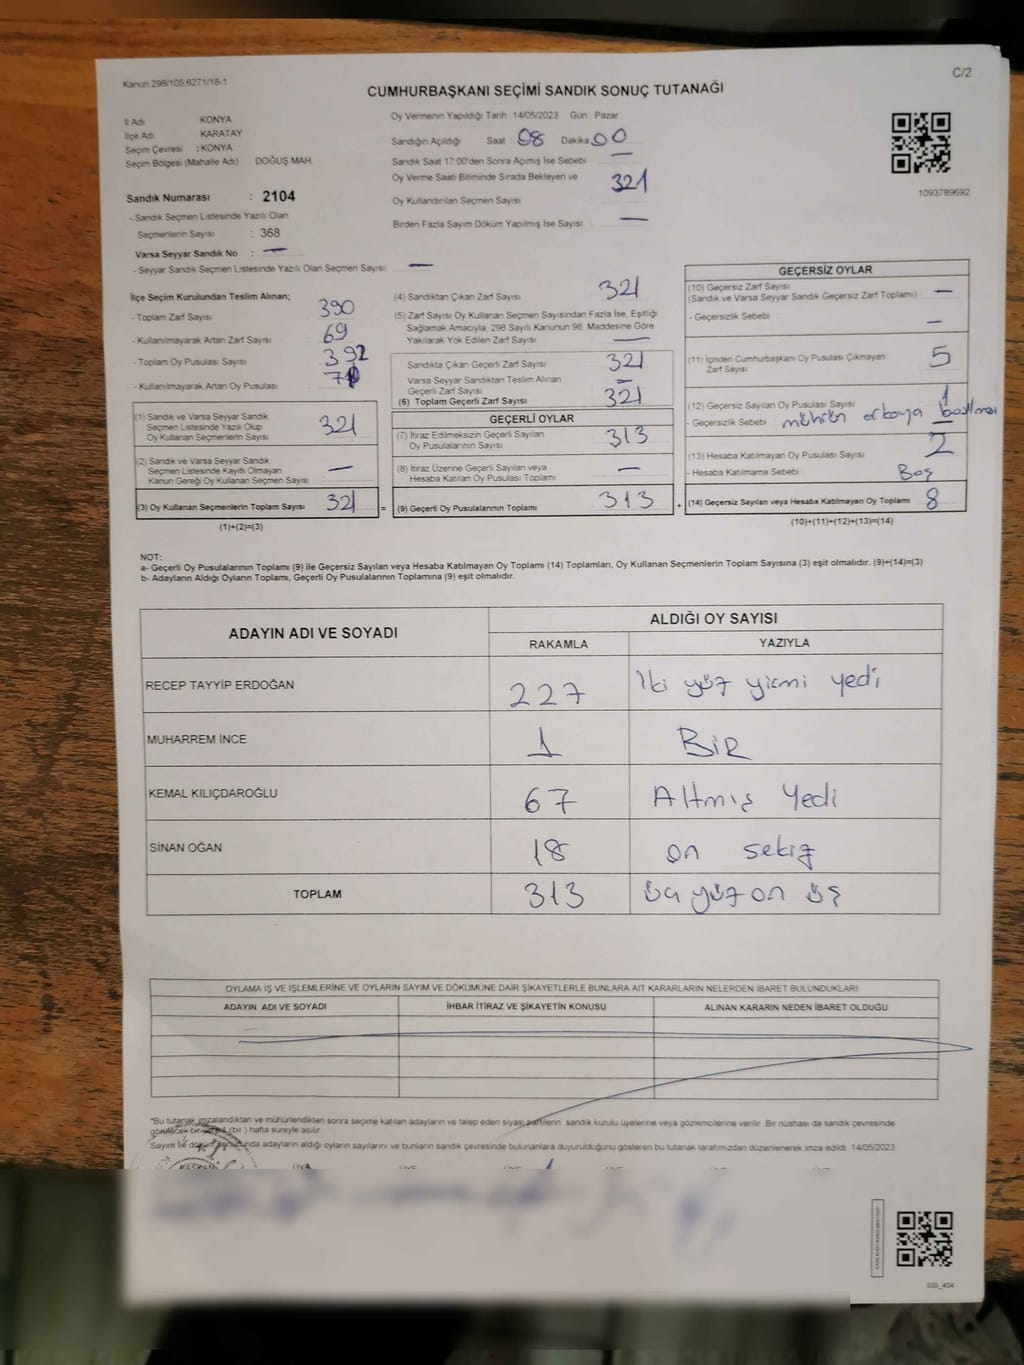 Kanun.298/105,6271/18-1
C/2
CUMHURBAŞKANI SEÇİMİ SANDIK SONUÇ TUTANAĞI
İl Adı KONYA
İlçe Adı KARATAY
Seçim Çevresi : KONYA
Seçim Bölgesi (Mahalle Adı) DOĞUŞ MAH.
Sandık Numarası : 2104
- Sandık Seçmen Listesinde Yazılı Olan
Seçmenlerin Sayısı : 368
Varsa Seyyar Sandık No : —
- Seyyar Sandık Seçmen Listesinde Yazılı Olan Seçmen Sayısı —
Oy Vermenin Yapıldığı Tarih 14/05/2023 Gün Pazar
Sandığın Açıldığı Saat 08 Dakika 00
Sandık Saat 17:00'den Sonra Açımış İse Sebebi —
Oy Verme Saati Bitiminde Sırada Bekleyen ve 321
Oy Kullandırılan Seçmen Sayısı
Birden Fazla Sayım Döküm Yapılmış İse Sayısı —
1093789692
İlçe Seçim Kurulundan Teslim Alınan;
- Toplam Zarf Sayısı 390
- Kullanılmayarak Artan Zarf Sayısı 69
- Toplam Oy Pusulası Sayısı 392
- Kullanılmayarak Artan Oy Pusulası
(1) Sandık ve Varsa Seyyar Sandık
Seçmen Listesinde Yazılı Olup 321
Oy Kullanan Seçmenlerin Sayısı
(2) Sandık ve Varsa Seyyar Sandık
Seçmen Listesinde Kayıtlı Olmayan —
Kanun Gereği Oy Kullanan Seçmen Sayısı
(3) Oy Kullanan Seçmenlerin Toplam Sayısı 321 =
(1)+(2)=(3)
(4) Sandıktan Çıkan Zarf Sayısı 321
(5) Zarf Sayısı Oy Kullanan Seçmen Sayısından Fazla İse, Eşitliği
Sağlamak Amacıyla, 298 Sayılı Kanunun 98. Maddesine Göre
Yakılarak Yok Edilen Zarf Sayısı —
Sandıkta Çıkan Geçerli Zarf Sayısı 321
Varsa Seyyar Sandıktan Teslim Alınan
Geçerli Zarf Sayısı —
(6) Toplam Geçerli Zarf Sayısı 321
GEÇERLİ OYLAR
(7) İtiraz Edilmeksizin Geçerli Sayılan 313
Oy Pusulasının Sayısı
(8) İtiraz Üzerine Geçerli Sayılan veya —
Hesaba Katılan Oy Pusulası Toplamı
(9) Geçerli Oy Pusulalarının Toplamı 313 +
GEÇERSİZ OYLAR
(10) Geçersiz Zarf Sayısı
(Sandık ve Varsa Seyyar Sandık Geçersiz Zarf Toplamı) —
- Geçersizlik Sebebi —
(11) İçinden Cumhurbaşkanı Oy Pusulası Çıkmayan 5
Zarf Sayısı
(12) Geçersiz Sayılan Oy Pusulası Sayısı 1
- Geçersizlik Sebebi mührün arkaya basılması
(13) Hesaba Katılmayan Oy Pusulası Sayısı 2
- Hesaba Katılmama Sebebi Boş
(14) Geçersiz Sayılan veya Hesaba Katılmayan Oy Toplamı 8
(10)+(11)+(12)+(13)=(14)
NOT:
a- Geçerli Oy Pusulalarının Toplamı (9) ile Geçersiz Sayılan veya Hesaba Katılmayan Oy Toplamı (14) Toplamları, Oy Kullanan Seçmenlerin Toplam Sayısına (3) eşit olmalıdır. (9)+(14)=(3)
b- Adayların Aldığı Oyların Toplamı, Geçerli Oy Pusulalarının Toplamına (9) eşit olmalıdır.
ADAYIN ADI VE SOYADI ALDIĞI OY SAYISI
RAKAMLA YAZIYLA
RECEP TAYYİP ERDOĞAN 227 İki yüz yirmi yedi
MUHARREM İNCE 1 BİR
KEMAL KILIÇDAROĞLU 67 Altmış Yedi
SİNAN OĞAN 18 on sekiz
TOPLAM 313 üç yüz on üç
OYLAMA İŞ VE İŞLEMLERİNE VE OYLARIN SAYIM VE DÖKÜMÜNE DAİR ŞİKAYETLERLE BUNLARA AİT KARARLARIN NELERDEN İBARET BULUNDUKLARI
ADAYIN ADI VE SOYADI İHBAR İTİRAZ VE ŞİKAYETİN KONUSU ALINAN KARARIN NEDEN İBARET OLDUĞU
*Bu tutanak imzalandıktan ve mühürlendikten sonra seçime katılan adayların ve talep eden siyasi partilerin sandık kurulu üyelerine veya gözlemcilerine verilir. Bir nüshası da sandık çevresinde
görülecek bir yere 1 (bir) hafta süreyle asılır.
Sayım ve döküm sonucunda adayların aldığı oyların sayılarını ve bunların sandık çevresinde bulunanlara duyurulduğunu gösteren bu tutanak tarafımızdan düzenlenerek imza edildi. 14/05/2023
BAŞKAN
SSI_404